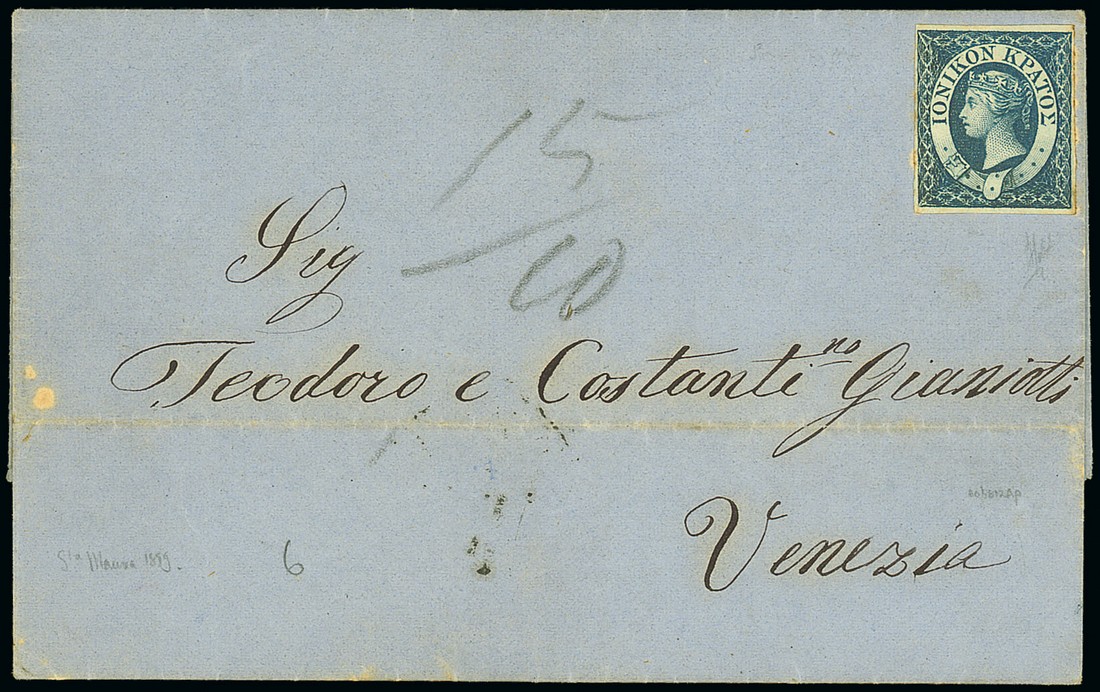 ΙΟΝΙΚΟΝ ΚΡΑΤΟΣ
15
10
Sig
Teodoro e Costanti no Gianiotti
Venezia
Sta Maura 1859.
6